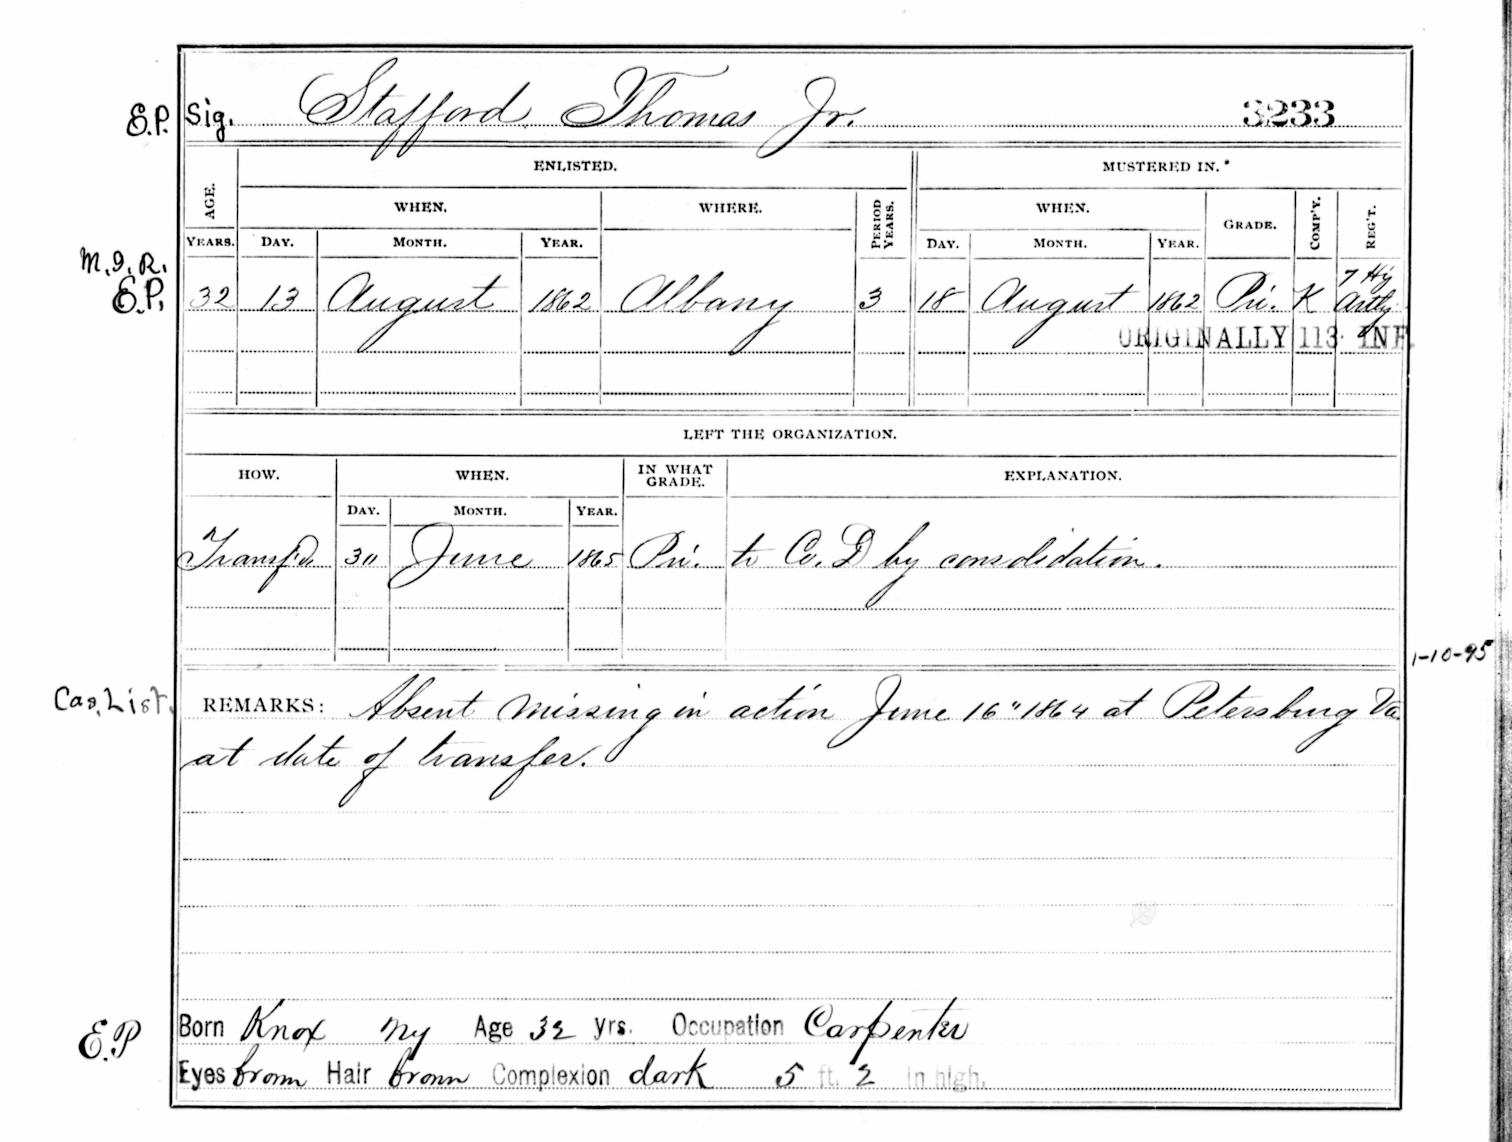 E.P. Sig. Stafford Thomas Jr. 3233
ENLISTED. MUSTERED IN.*
AGE. WHEN. WHERE. PERIOD YEARS. WHEN. GRADE. COMP'Y. REG'T.
YEARS. DAY. MONTH. YEAR. DAY. MONTH. YEAR.
M.I.R.
E.P. 32 13 August 1862 Albany 3 18 August 1862 Pri. K 7 Hy Artly
ORIGINALLY 113 INF.
LEFT THE ORGANIZATION.
HOW. WHEN. IN WHAT GRADE. EXPLANATION.
DAY. MONTH. YEAR.
Transf'd 30 June 1865 Pri. to Co. D by consolidation.
1-10-95
Cas. List. REMARKS: Absent missing in action June 16" 1864 at Petersburg Va
at date of transfer.
E.P Born Knox Ny Age 32 yrs. Occupation Carpenter
Eyes brown Hair brown Complexion dark 5 ft. 2 in high.